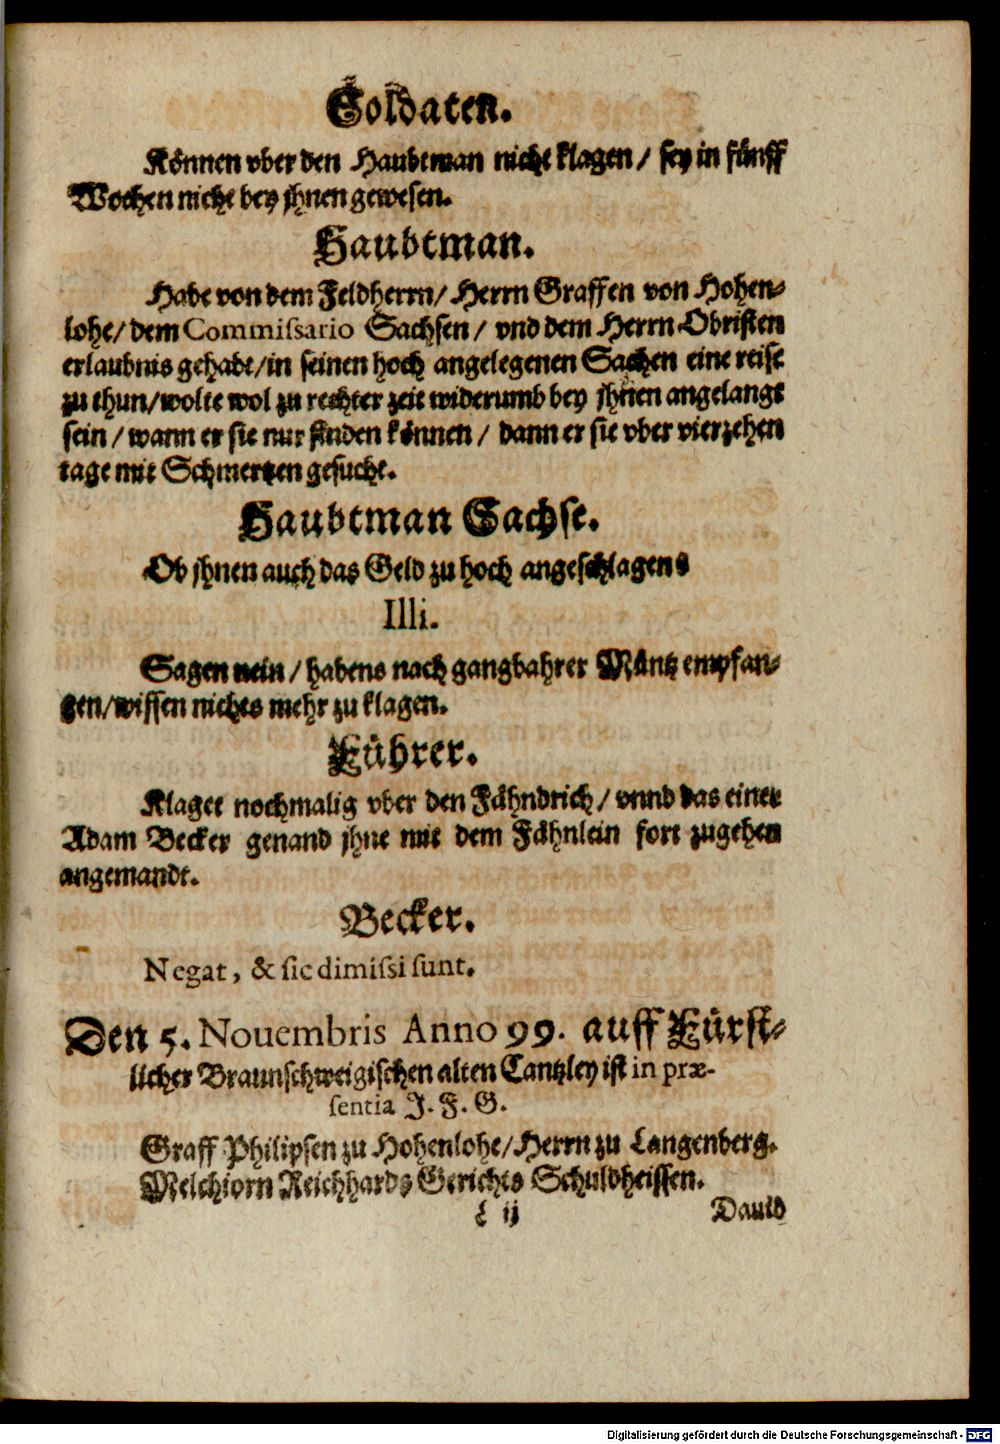 Soldaten.
Können vber den Haubtman nicht klagen / sey in fünff
Wochen nicht bey jhnen gewesen.
Haubtman.
Habe von dem Feldherrn / Herrn Graffen von Hohen-
lohe / dem Commissario Sachsen / vnd dem Herrn Obristen
erlaubnis gehabt / in seinen hoch angelegenen Sachen eine reise
zu thun / wolte wol zu rechter zeit widerumb bey jhnen angelangt
sein / wann er sie nur finden können / dann er sie vber vierzehen
tage mit Schmertzen gesucht.
Haubtman Sachse.
Ob jhnen auch das Geld zu hoch angeschlagen?
Illi.
Sagen nein / habens nach gangbahrer Müntz empfan-
gen / wissen nichts mehr zu klagen.
Führer.
Klaget nochmalig vber den Fähndrich / vnnd das einer
Adam Becker genand jhne mit dem Fähnlein fort zugehen
angemandt.
Becker.
Negat, & sic dimissi sunt.
Den 5. Nouembris Anno 99. auff Fürst-
licher Braunschweigischen alten Cantzley ist in præ-
sentia J. F. G.
Graff Philipsen zu Hohenlohe / Herrn zu Langenberg.
Melchiorn Reichhards Gerichts Schuldheissen.
ij Dauid
Digitalisierung gefördert durch die Deutsche Forschungsgemeinschaft - DFG